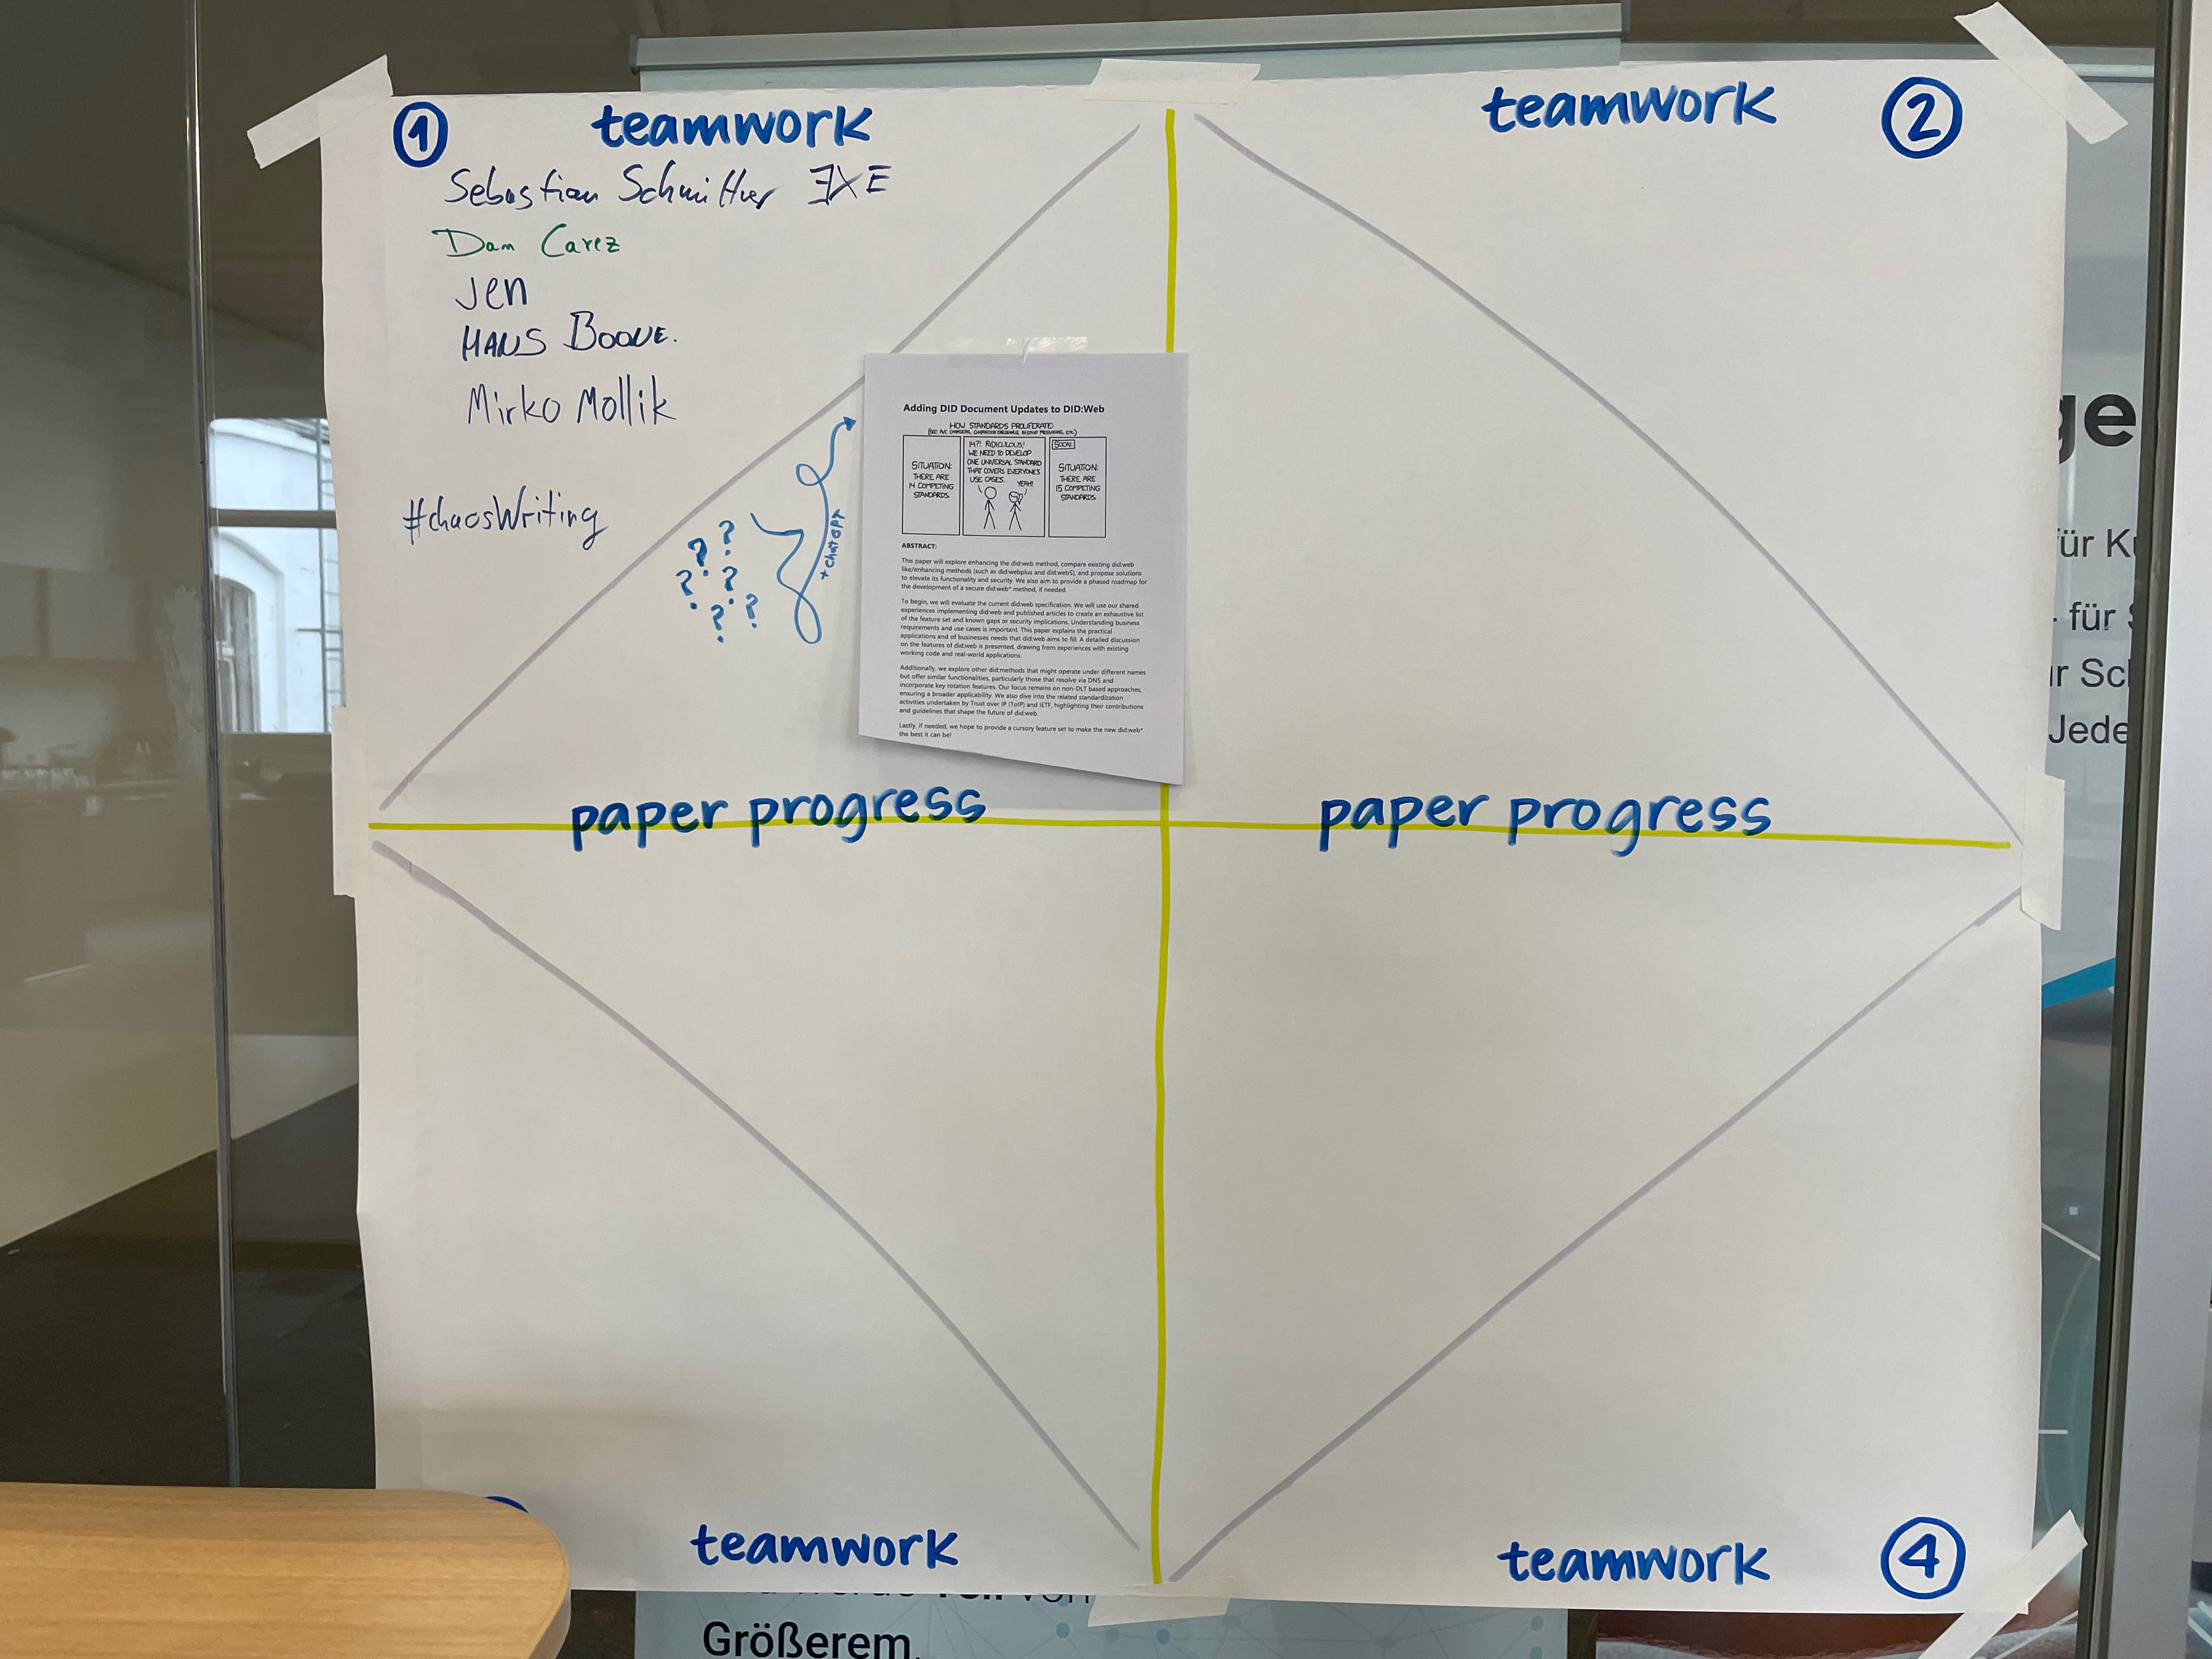 ① teamwork
Sebastian Schmittner EXE
Dam Carez
Jen
HANS BOONE.
Mirko Mollik
#chaosWriting
? ? ? ? ? ? ?
+ chatGPT
teamwork ②
Adding DID Document Updates to DID:Web
HOW STANDARDS PROLIFERATE:
(SEE: A/C CHARGERS, CHARACTER ENCODINGS, INSTANT MESSAGING, ETC.)
SITUATION:
THERE ARE
14 COMPETING
STANDARDS.
14?! RIDICULOUS!
WE NEED TO DEVELOP
ONE UNIVERSAL STANDARD
THAT COVERS EVERYONE'S
USE CASES.
YEAH!
SOON:
SITUATION:
THERE ARE
15 COMPETING
STANDARDS.
ABSTRACT:
This paper will explore enhancing the did:web method, compare existing did:web
like/enhancing methods (such as did:webplus and did:webS), and propose solutions
to elevate its functionality and security. We also aim to provide a phased roadmap for
the development of a secure did:web* method, if needed.
To begin, we will evaluate the current did:web specification. We will use our shared
experiences implementing did:web and published articles to create an exhaustive list
of the feature set and known gaps or security implications. Understanding business
requirements and use cases is important. This paper explains the practical
applications and of businesses needs that did:web aims to fill. A detailed discussion
on the features of did:web is presented, drawing from experiences with existing
working code and real-world applications.
Additionally, we explore other did:methods that might operate under different names
but offer similar functionalities, particularly those that resolve via DNS and
incorporate key rotation features. Our focus remains on non-DLT based approaches,
ensuring a broader applicability. We also dive into the related standardization
activities undertaken by Trust over IP (ToIP) and IETF, highlighting their contributions
and guidelines that shape the future of did:web.
Lastly, if needed, we hope to provide a cursory feature set to make the new did:web*
the best it can be!
paper progress
paper progress
teamwork
teamwork ④
ge
für
- für
Jede
Größerem.